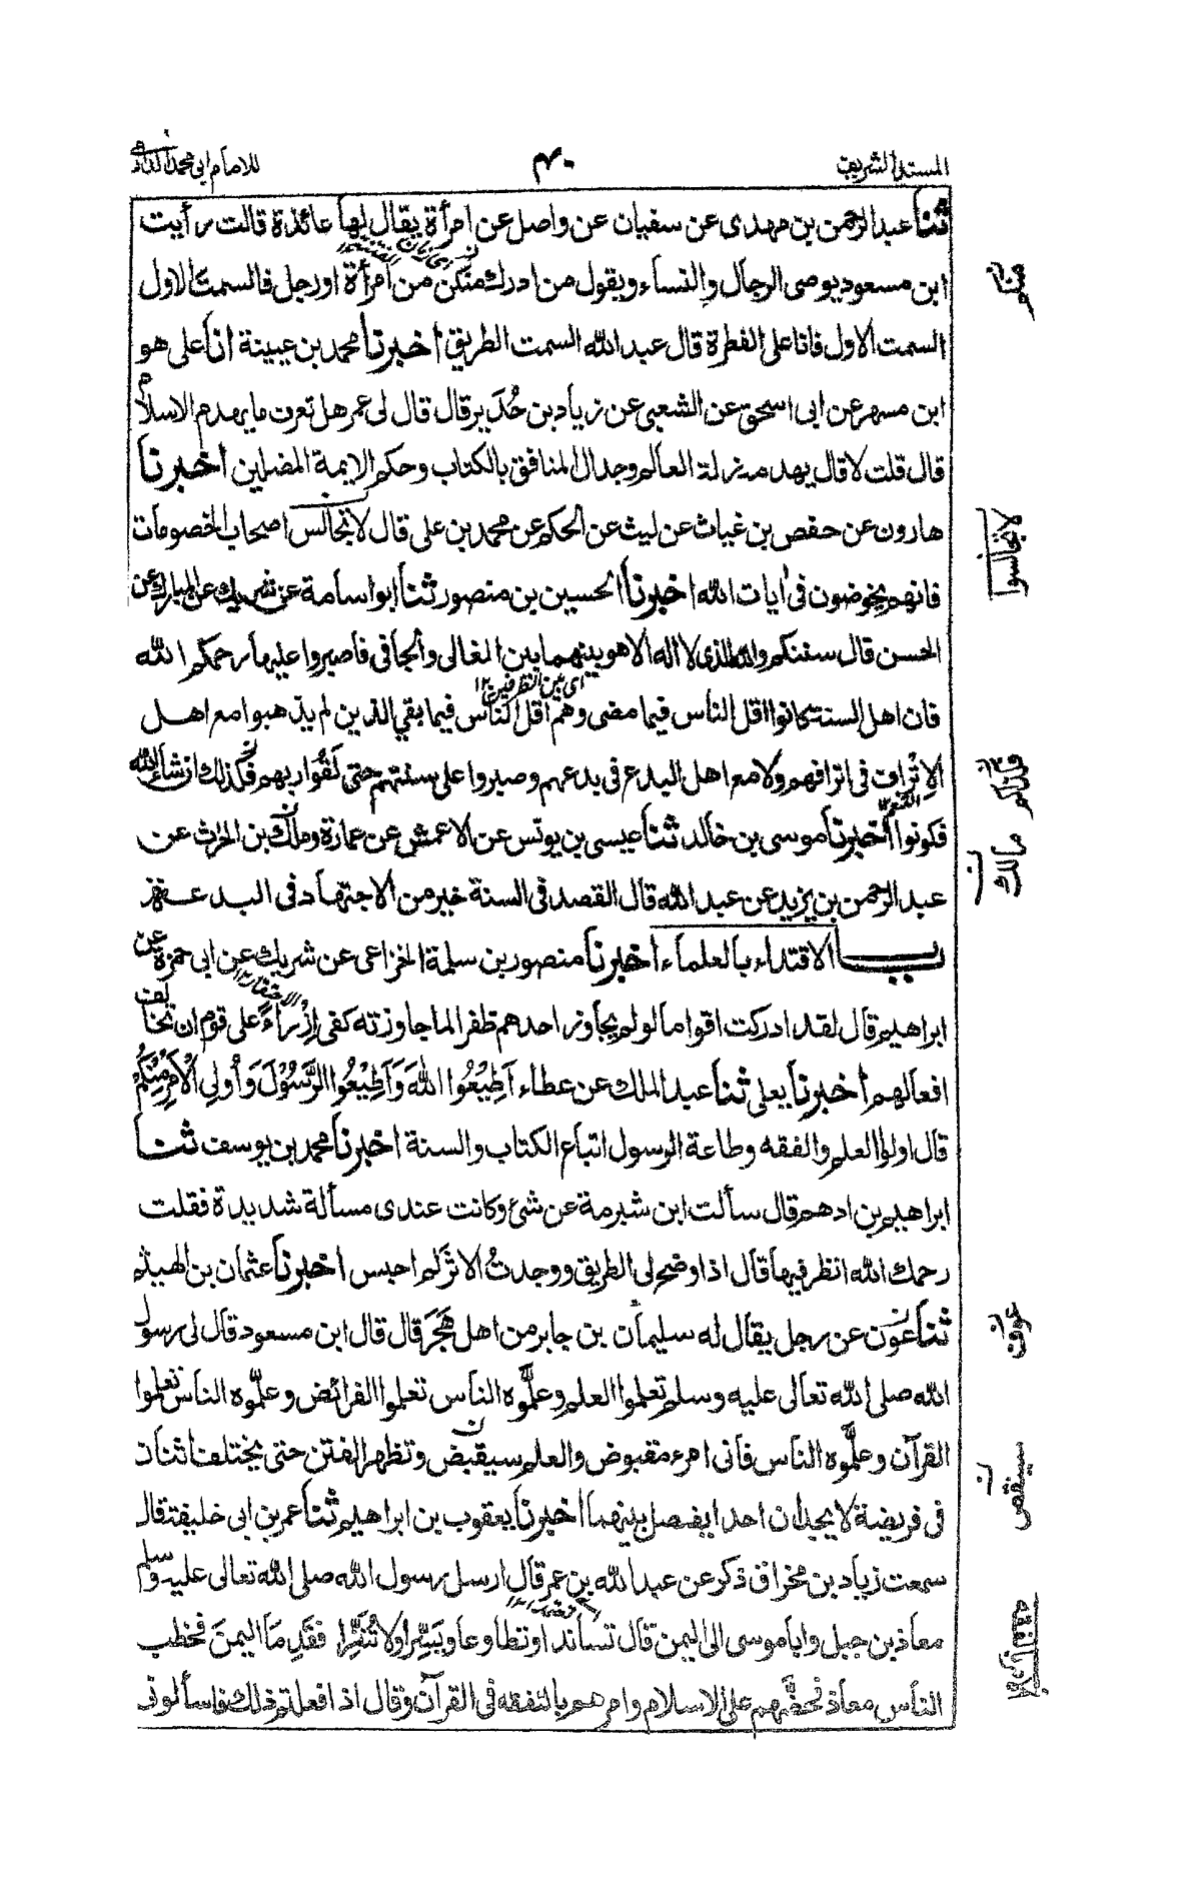 المسند الشريف
٤٠
للامام ابى محمد الدارمى
ثنا عبد الرحمن بن مهدى عن سفيان عن واصل عن امرأة يقال لها عائذة قالت رأيت
ابن مسعود يوصى الرجال والنساء ويقول من ادرك منكن من امرأة اورجل فالسمت الاول
السمت الاول فانا على الفطرة قال عبد الله السمت الطريق اخبرنا محمد بن عيينة انا على هو
ابن مسهر عن ابى اسحق عن الشعبى عن زياد بن حُدَير قال قال لى عمر هل تعرف ما يهدم الاسلام
قال قلت لا قال يهدمه زلة العالم وجدال المنافق بالكتاب وحكم الايمة المضلين اخبرنا
هارون عن حفص بن غياث عن ليث عن الحكم عن محمد بن على قال لا تجالس اصحاب الخصومات
فانهم يخوضون فى ايات الله اخبرنا الحسين بن منصور ثنا ابو اسامة عن شريك عن المبارك عن
الحسن قال سنتكم والله الذى لا اله الا هو بينهما بين الغالى والجافى فاصبروا عليها رحمكم الله
اى بين الطرفين ١٢
فان اهل السنة كانوا اقل الناس فيما مضى وهم اقل الناس فيما بقي الذين لم يذهبوا مع اهل
الاِتْراف فى اترافهم ولا مع اهل البدع فى بدعهم وصبروا على سنتهم حتى لَقُوا ربهم فكذلك انشاء الله
فكونوا اخبرنا موسى بن خالد ثنا عيسى بن يونس عن الاعمش عن عمارة وملك بن الحرث عن
عبد الرحمن بن يزيد عن عبد الله قال القصد فى السنة خير من الاجتهاد فى البدعة
باب الاقتداء بالعلماء اخبرنا منصور بن سلمة الخزاعى عن شريك عن ابى حمزة عن
ابراهيم قال لقد ادركت اقواما لو لم يجاوز احدهم ظفرا لما جاوزته كفى اِزْراءً على قوم ان تخالف
افعالهم اخبرنا يعلى ثنا عبد الملك عن عطاء اَطِيْعُوا اللهَ وَاَطِيْعُوا الرَّسُوْلَ وَاُولِى الْاَمْرِ مِنْكُمْ
قال اولوا العلم والفقه وطاعة الرسول اتباع الكتاب والسنة اخبرنا محمد بن يوسف ثنا
ابراهيم بن ادهم قال سألت ابن شبرمة عن شئ وكانت عندى مسألة شديدة فقلت
رحمك الله انظر فيها قال اذا وضح لى الطريق ووجدتُ الاثر لم احبس اخبرنا عثمان بن الهيثم
ثنا عون عن رجل يقال له سليمان بن جابر من اهل هَجَرَ قال قال ابن مسعود قال لى رسول
الله صلى الله تعالى عليه وسلم تعلموا العلم وعلّموه الناس تعلموا الفرائض وعلّموه الناس تعلموا
القرآن وعلّموه الناس فانى امرء مقبوض والعلم سيقبض وتظهر الفتن حتى يختلف اثنان
فى فريضة لا يجدان احدا يفصل بينهما اخبرنا يعقوب بن ابراهيم ثنا عمر بن ابى خليفة قال
سمعت زياد بن مخراق ذكر عن عبد الله بن عمر قال ارسل رسول الله صلى الله تعالى عليه وسلم
معاذ بن جبل وابا موسى الى اليمن قال تساندا وتطاوعا ويَسِّرا ولا تُنَفِّرا فقَدِمَا اليمنَ فخطب
الناس معاذ فحضّهم على الاسلام وامرهم بالتفقه فى القرآن وقال اذا فعلتم ذلك فاسألونى
منكم
لا تجالسوا
فذلكم
مالك
عوف
سينقص